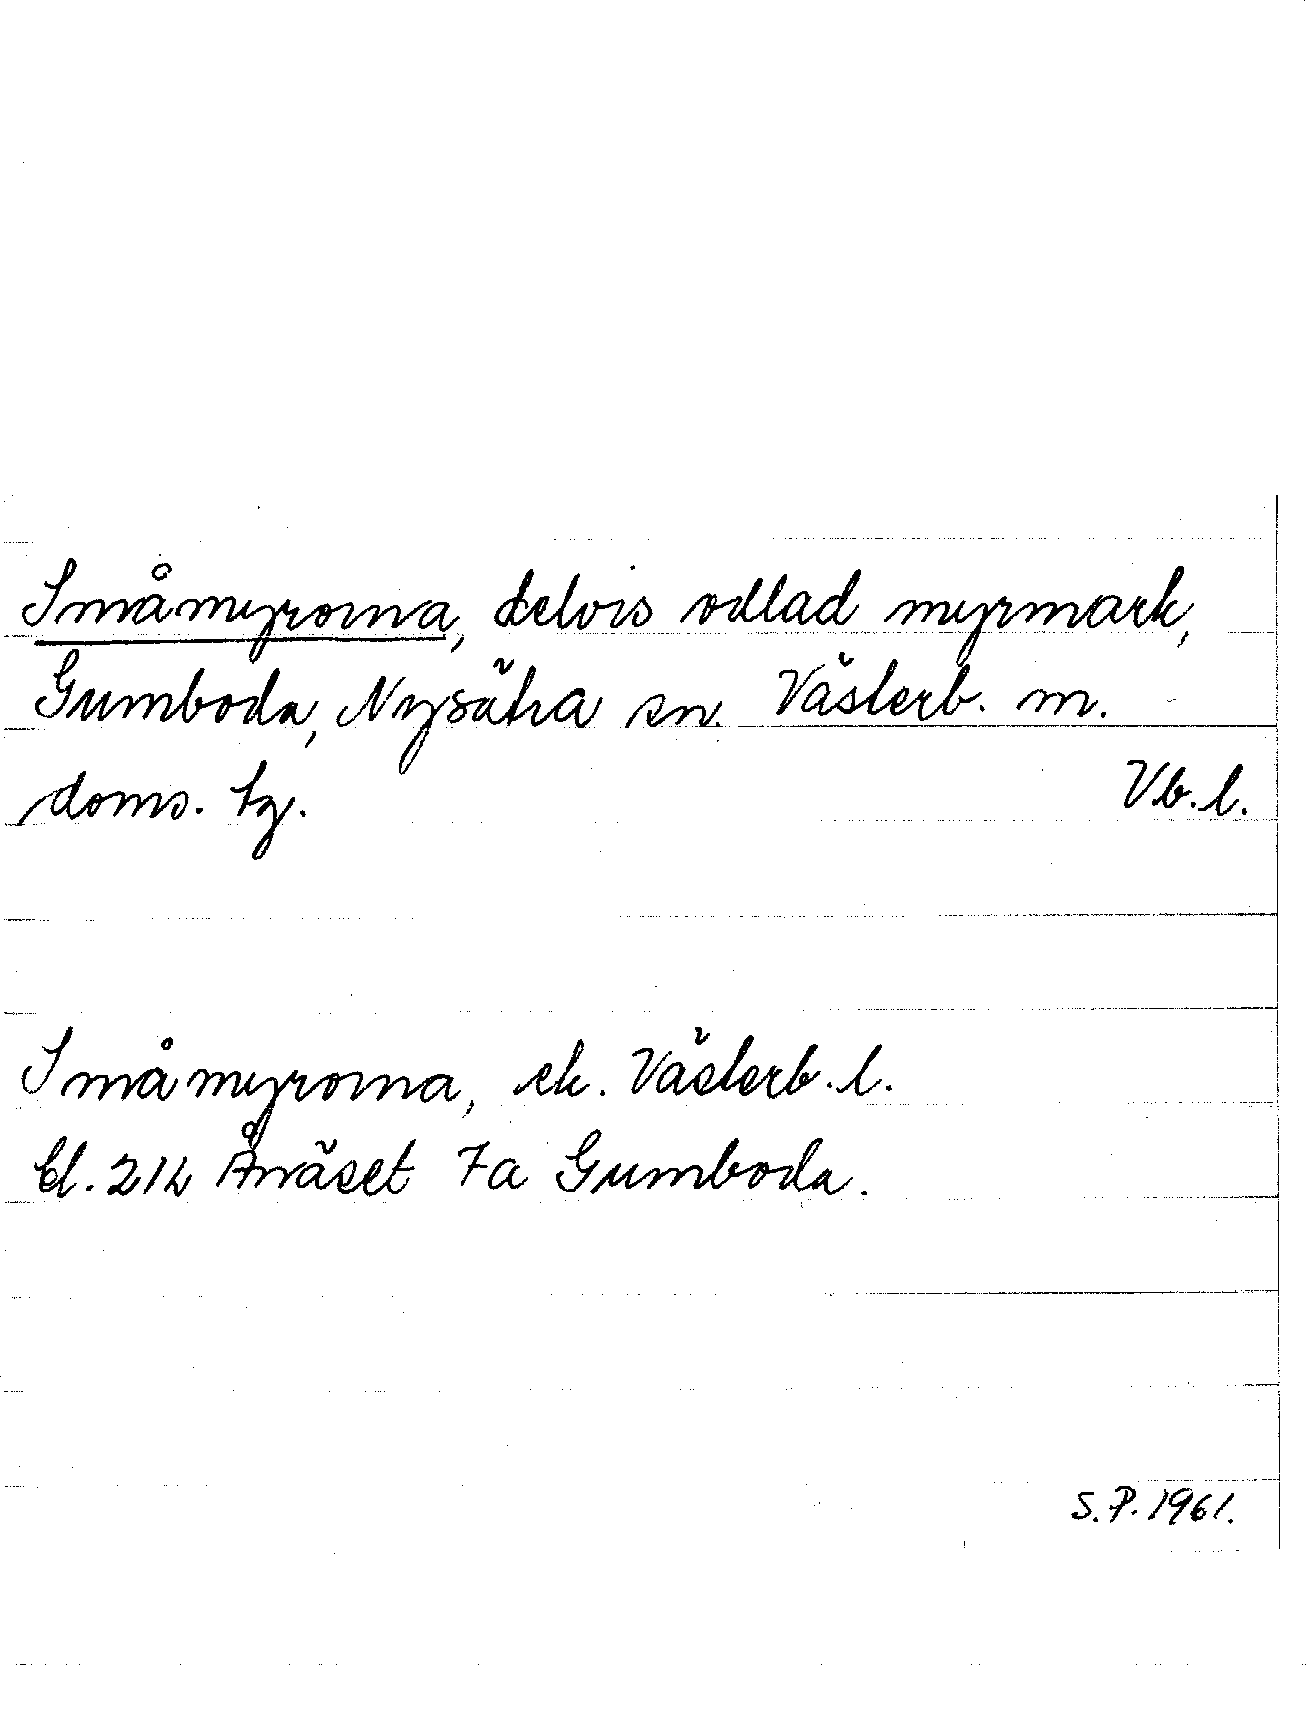 Småmyrorna, delvis odlad myrmark,
Gumboda, Nysätra sn. Västerb. m.
doms. tg. Vb.l.
Småmyrorna, ek. Västerb. l.
bl. 214 Ånäset 7a Gumboda.
S.P. 1961.